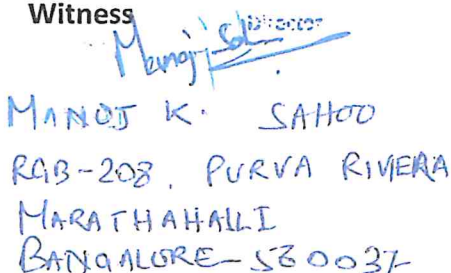 Witness
Director
Manoj Sah
MANOJ K. SAHOO
RGB-208, PURVA RIVIERA
MARATHAHALLI
BANGALORE-560037